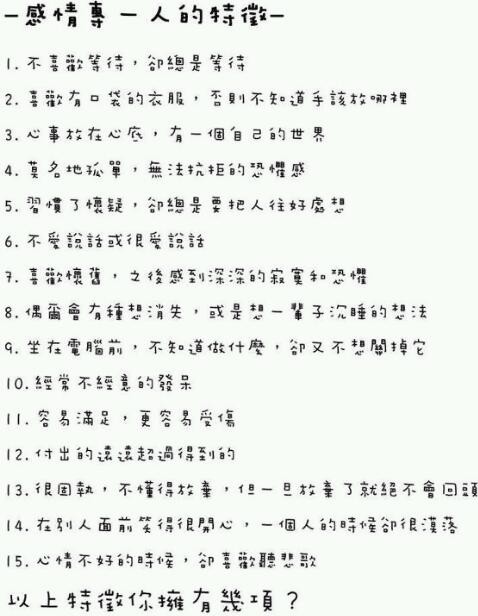 -感情專一人的特徵-
1. 不喜歡等待，卻總是等待
2. 喜歡有口袋的衣服，否則不知道手該放哪裡
3. 心事放在心底，有一個自己的世界
4. 莫名地孤單，無法抗拒的恐懼感
5. 習慣了懷疑，卻總是要把人往好處想
6. 不愛說話或很愛說話
7. 喜歡懷舊，之後感到深深的寂寞和恐懼
8. 偶爾會有種想消失，或是想一輩子沉睡的想法
9. 坐在電腦前，不知道做什麼，卻又不想關掉它
10. 經常不經意的發呆
11. 容易滿足，更容易受傷
12. 付出的遠遠超過得到的
13. 很固執，不懂得放棄，但一旦放棄了就絕不會回頭
14. 在別人面前笑得很開心，一個人的時候卻很漠落
15. 心情不好的時候，卻喜歡聽悲歌
以上特徵你擁有幾項？